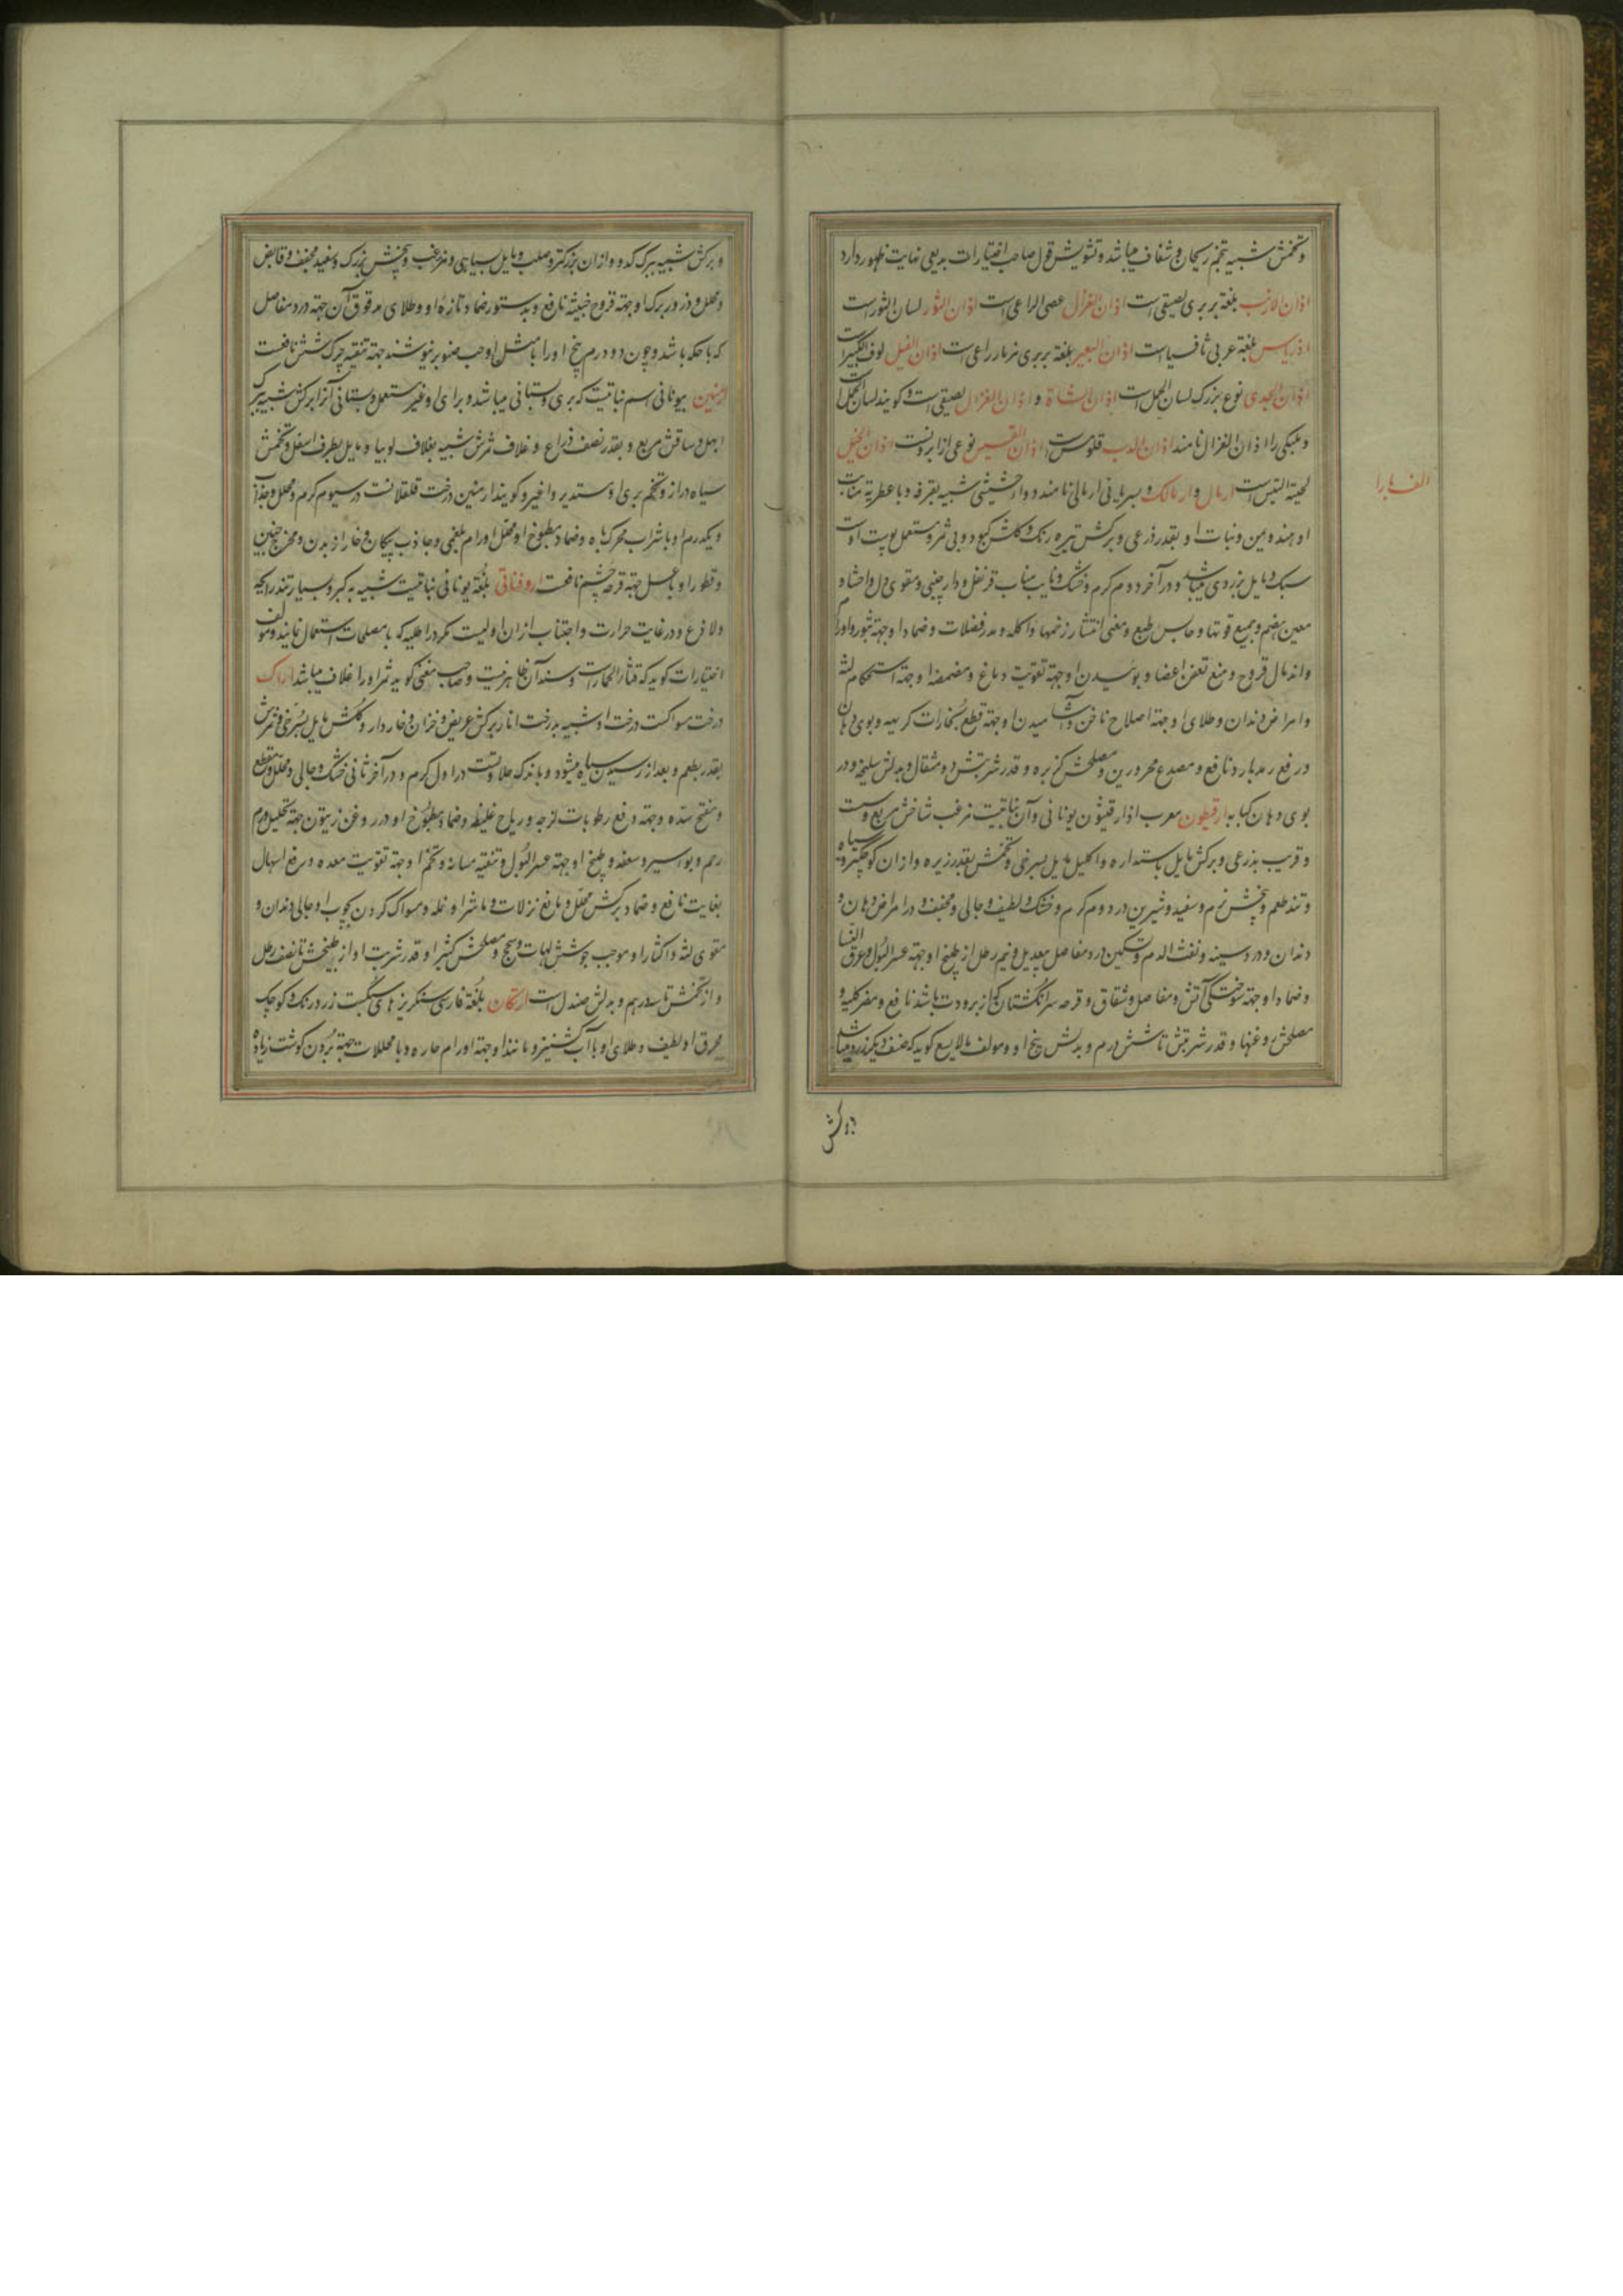 و تخمش شبیه بتخم ریحان و شفاف میباشد و تشویش قول صاحب اختیارات بدیعی نهایت ظهور دارد
اذان الارنب بلغة بربری لصیقی است اذان الغزال عصی الراعی است اذان الثور لسان الثور است
اذریاس بلغة عربی ثافسیا است اذان البعیر بلغة بربری مزمار راعی است اذان الفیل لوف الکبیر است
اذان الجدی نوع بزرک لسان الحمل است اذان الشاة و اذان الغزال لصیقی است و کویند لسان الحمل است
و بلبکی را اذان الغزال نامند اذان الدب قلومس است اذان القسیس نوعی از ابرونست اذان الخیل
الف با را
لحیة التیس است ارمال و ارمالک و بسریانی ارمالی نامند دواء خشیشی شبیه بقرفه و با عطریة منابت
او هند و یمن و نبات او بقدر ذرعی و برکش تیره رنک و کلش کبود و بی ثمر و مستعمل پوست اوست
سبک و مایل بزردی میباشد و در آخر دوم کرم و خشک و نایب مناب قرنفل و دارچینی و مقوی دل و احشاء و
معین هضم و جمیع قوتها و حابس طبع و مغنی انتشار زخمها و اکله و مدر فضلات و ضماد او جهة بثور و اورام
و اندمال قروح و منع تعفن اعضا و بوئیدن او جهة تقویت دماغ و مضمضهٔ او جهة استحکام لثه
و امراض دندان و طلای او جهة اصلاح ناخن و آشامیدن او جهة قطع بخارات کریهه و بوی دهان
و رفع رمد بارد نافع و مصدع محرورین و مصلحش کزبره و قدر شربتش دو مثقال و بدلش سلیخه و در
بوی دهان کبابه ارقیطون معرب اذارقیثون یونانی و آن نباتیست مزغب شاخش مربع و سست
و قریب بذرعی و برکش مایل باستداره و اکلیل مایل بسرخی و تخمش بقدر زیره و از ان کوچکتر و سیاه
و تند طعم و بیخش نرم و سفید و شیرین در دوم کرم و خشک و لطیف و جالی و مجفف و در امراض دهان و
دندان و درد سینه و نفث الدم و تسکین درد مفاصل بیعدیل و نیم رطل از طبیخ او جهة عسر البول و عرق النسا
و ضماد او جهة سوختکی آتش و مفاصل و شقاق و قرحه سر انکشتان که از برودت باشد نافع و مضر کلیه و
مصلحش روغنها و قدر شربتش تا شش درم و بدلش بیخ او و مولف مالایسع کوید که صنف دیکر زرد میباشد
و برکش شبیه ببرک کدو و از ان بزرکتر و صلب و مایل بسیاهی و مزغب و بیخش بزرک و سفید مجفف و قابض
و محلل و ذرور برک او جهة قروح خبیثه نافع و بدستور ضماد تازه او و طلای مدقوق آن جهة درد مفاصل
که با حکه باشد و چون دو درم بیخ او را با مثل او حب صنوبر بنوشند جهة تنقیه چرک شش نافعست
ارمنین بیونانی اسم نباتیست که بری و بستانی میباشد و برای او غیر مستعمل و بستانی آنرا برکش شبیه ببرک
ابهل و ساقش مربع و بقدر نصف ذراع و غلاف ثمرش شبیه بغلاف لوبیا و مایل بطرف اسفل و تخمش
سیاه دراز و تخم بری او مستدیر و اغبر و کویند ارمنین درخت قلقلانست در سیوم کرم و محلل و جذاب
و یکدرم او با شراب محرک باه و ضماد مطبوخ او محلل اورام بلغمی و جاذب پیکان و خار از بدن و مخرج جنین
و قطور او با عسل جهة قرحه چشم نافعست اروفنانی بلغة یونانی نباتیست شبیه به کبر و بسیار تند رایحه
و لاذع و در غایت حرارت و اجتناب از ان اولیست مکر در اطلیه که با مصلحات استعمال نمایند و مولف
اختیارات کوید که قثاء الحمار است و سند آن ظاهر نیست و صاحب مغنی کوید ثمر او را غلاف میباشد اراک
درخت مسواکست درخت او شبیه بدرخت انار برکش عریض و خزان و خاردار و کلش مایل بسرخی و ثمرش
بقدر بطم و بعد از رسیدن سیاه میشود و با اندک حلاوتست در اول کرم و در آخر ثانی خشک و جالی و محلل و مقطع
و مفتح سده و جهة دفع رطوبات لزجه و ریاح غلیظه و ضماد مطبوخ او در روغن زیتون جهة تحلیل ورم
رحم و بواسیر و سعفه و طبخ او جهة عسر البول و تنقیه مثانه و تخم او جهة تقویت معده و رفع اسهال
بغایت نافع و ضماد برکش محلل و مانع نزلات و ماشرا و نمله و مسواک کردن بچوب او جالی دندان و
مقوی لثه و اکثار او موجب جوشش لهات و سحج و مصلحش کثیرا و قدر شربت او از طبیخش تا نصف رطل
و از تخمش تا سه درهم و بدلش صندل است ارتکان بلغة فارسی سنکریزهای سبکست زرد رنک و کوچک
محرق او لطیف و طلای او با آب کشنیز و مانند او جهة اورام حاره و با محللات جهة بردن کوشت زیاده
و برکش